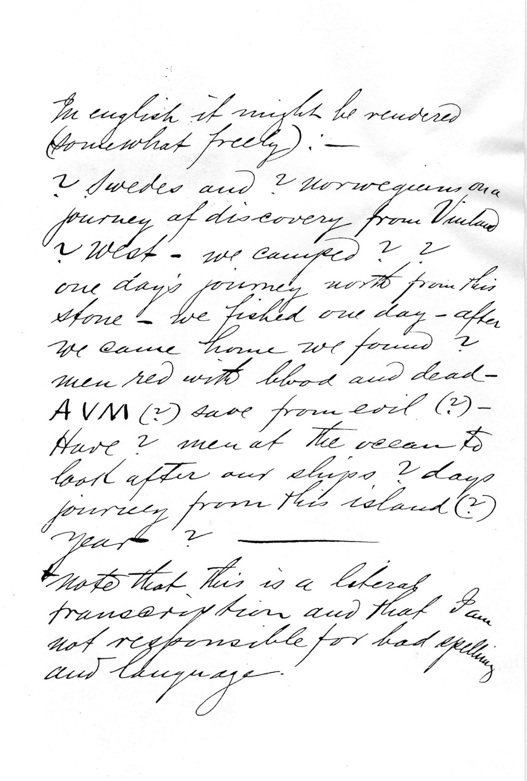 In english it might be rendered
(somewhat freely):—
? Swedes and ? norwegians on a
journey of discovery from Vinland
? West - we camped ? ?
one day's journey north from this
stone - we fished one day - after
we came home we found ?
men red with blood and dead -
AVM (?) save from evil (?) -
Have ? men at the ocean to
look after our ships ? days
journey from this island (?)
year ? ———
note that this is a literal
transcription and that I am
not responsible for bad spelling
and language.